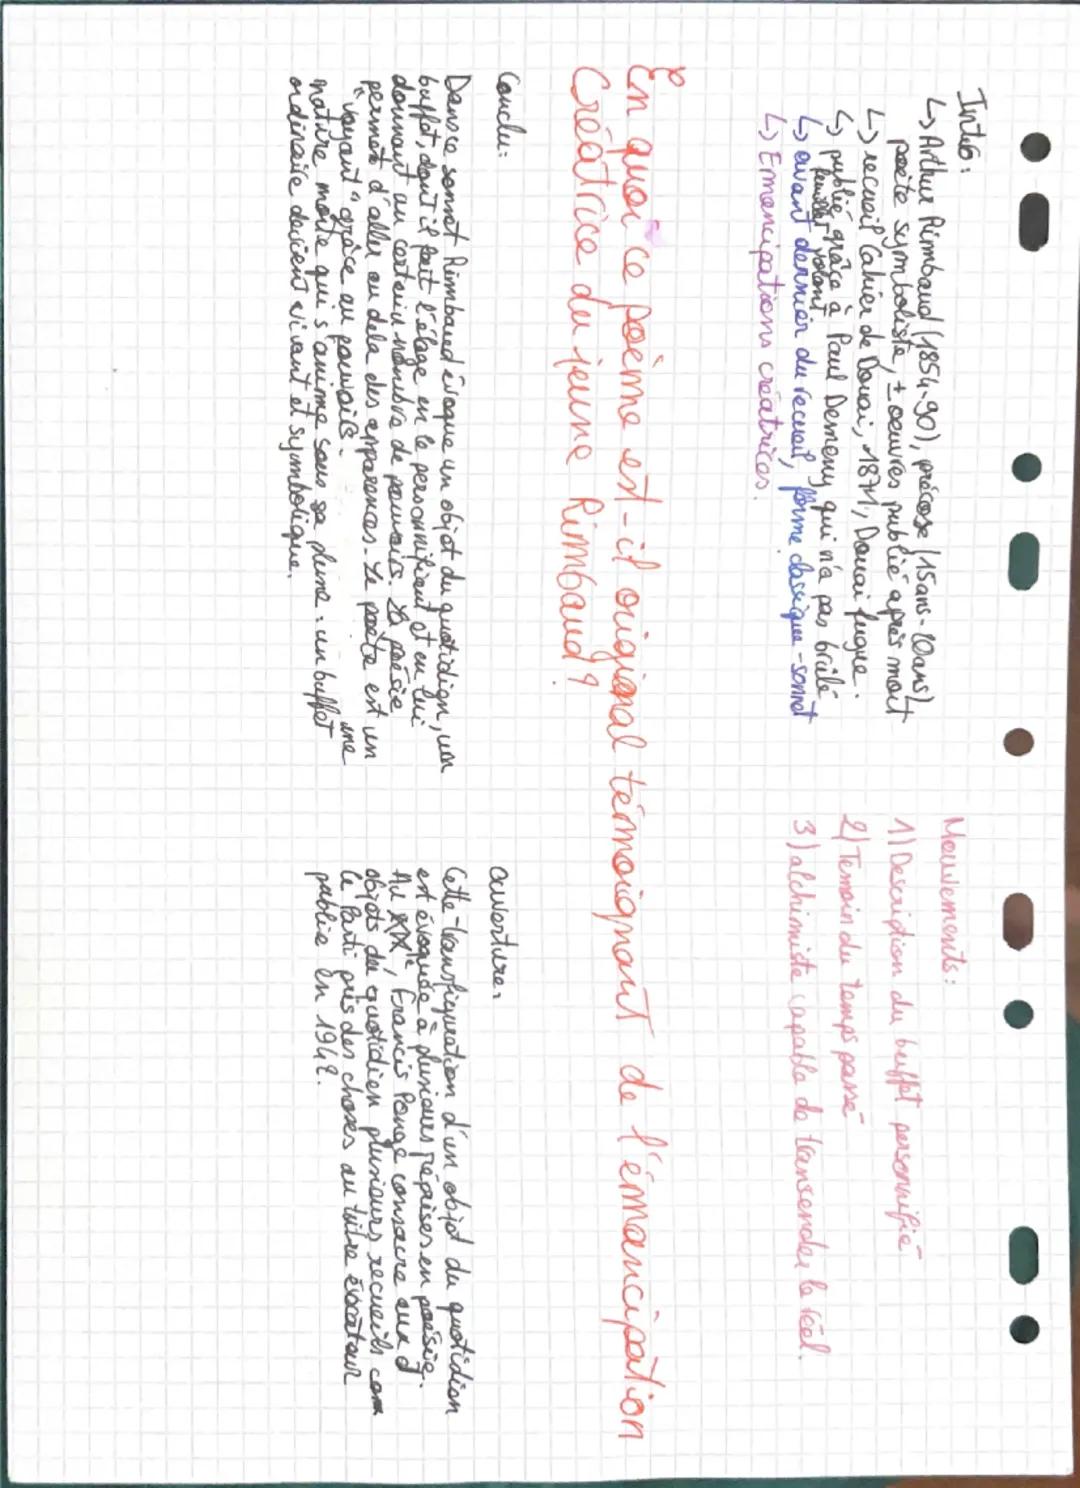 Intro:
↳ Arthur Rimbaud (1854-90), précose (15ans-20ans)
poète symboliste, ± oeuvres publié après mort
↳ recueil Cahier de Douai, 1871, Douai fugue.
↳ publié grâce à Paul Demeny qui n'a pas brûlé
feuillet volant
↳ avant dernier du recueil, forme classique - sonnet
↳ Emancipations créatrices.
Mouvements:
1) Description du buffet personnifié
2) Temoin du temps passé
3) alchimiste capable de transender le réel.
P
En quoi ce poème est-il original témoignant de l'émancipation
Créatrice du jeune Rimbaud?
Conclu:
Dans ce sonnet Rimbaud évoque un objet du quotidien, un
buffet, dont il fait l'éloge en le personnifiant et en lui
donnant un certain nombre de pouvoirs. La poésie
permet d'aller au dela des apparences. Le poète est un
"voyant" grâce au pouvoirs. une
nature morte qui s'anime sous sa plume: un buffet
ordinaire devient vivant et symbolique.
Ouverture:
Cette transfiguration d'un objet du quotidien
est évoquée à plusieurs reprises en poésie.
Au XXe, Francis Ponge consacre aux
objets du quotidien plusieurs recueils com
le Parti pris des choses au titre évocateur
publié en 1942.